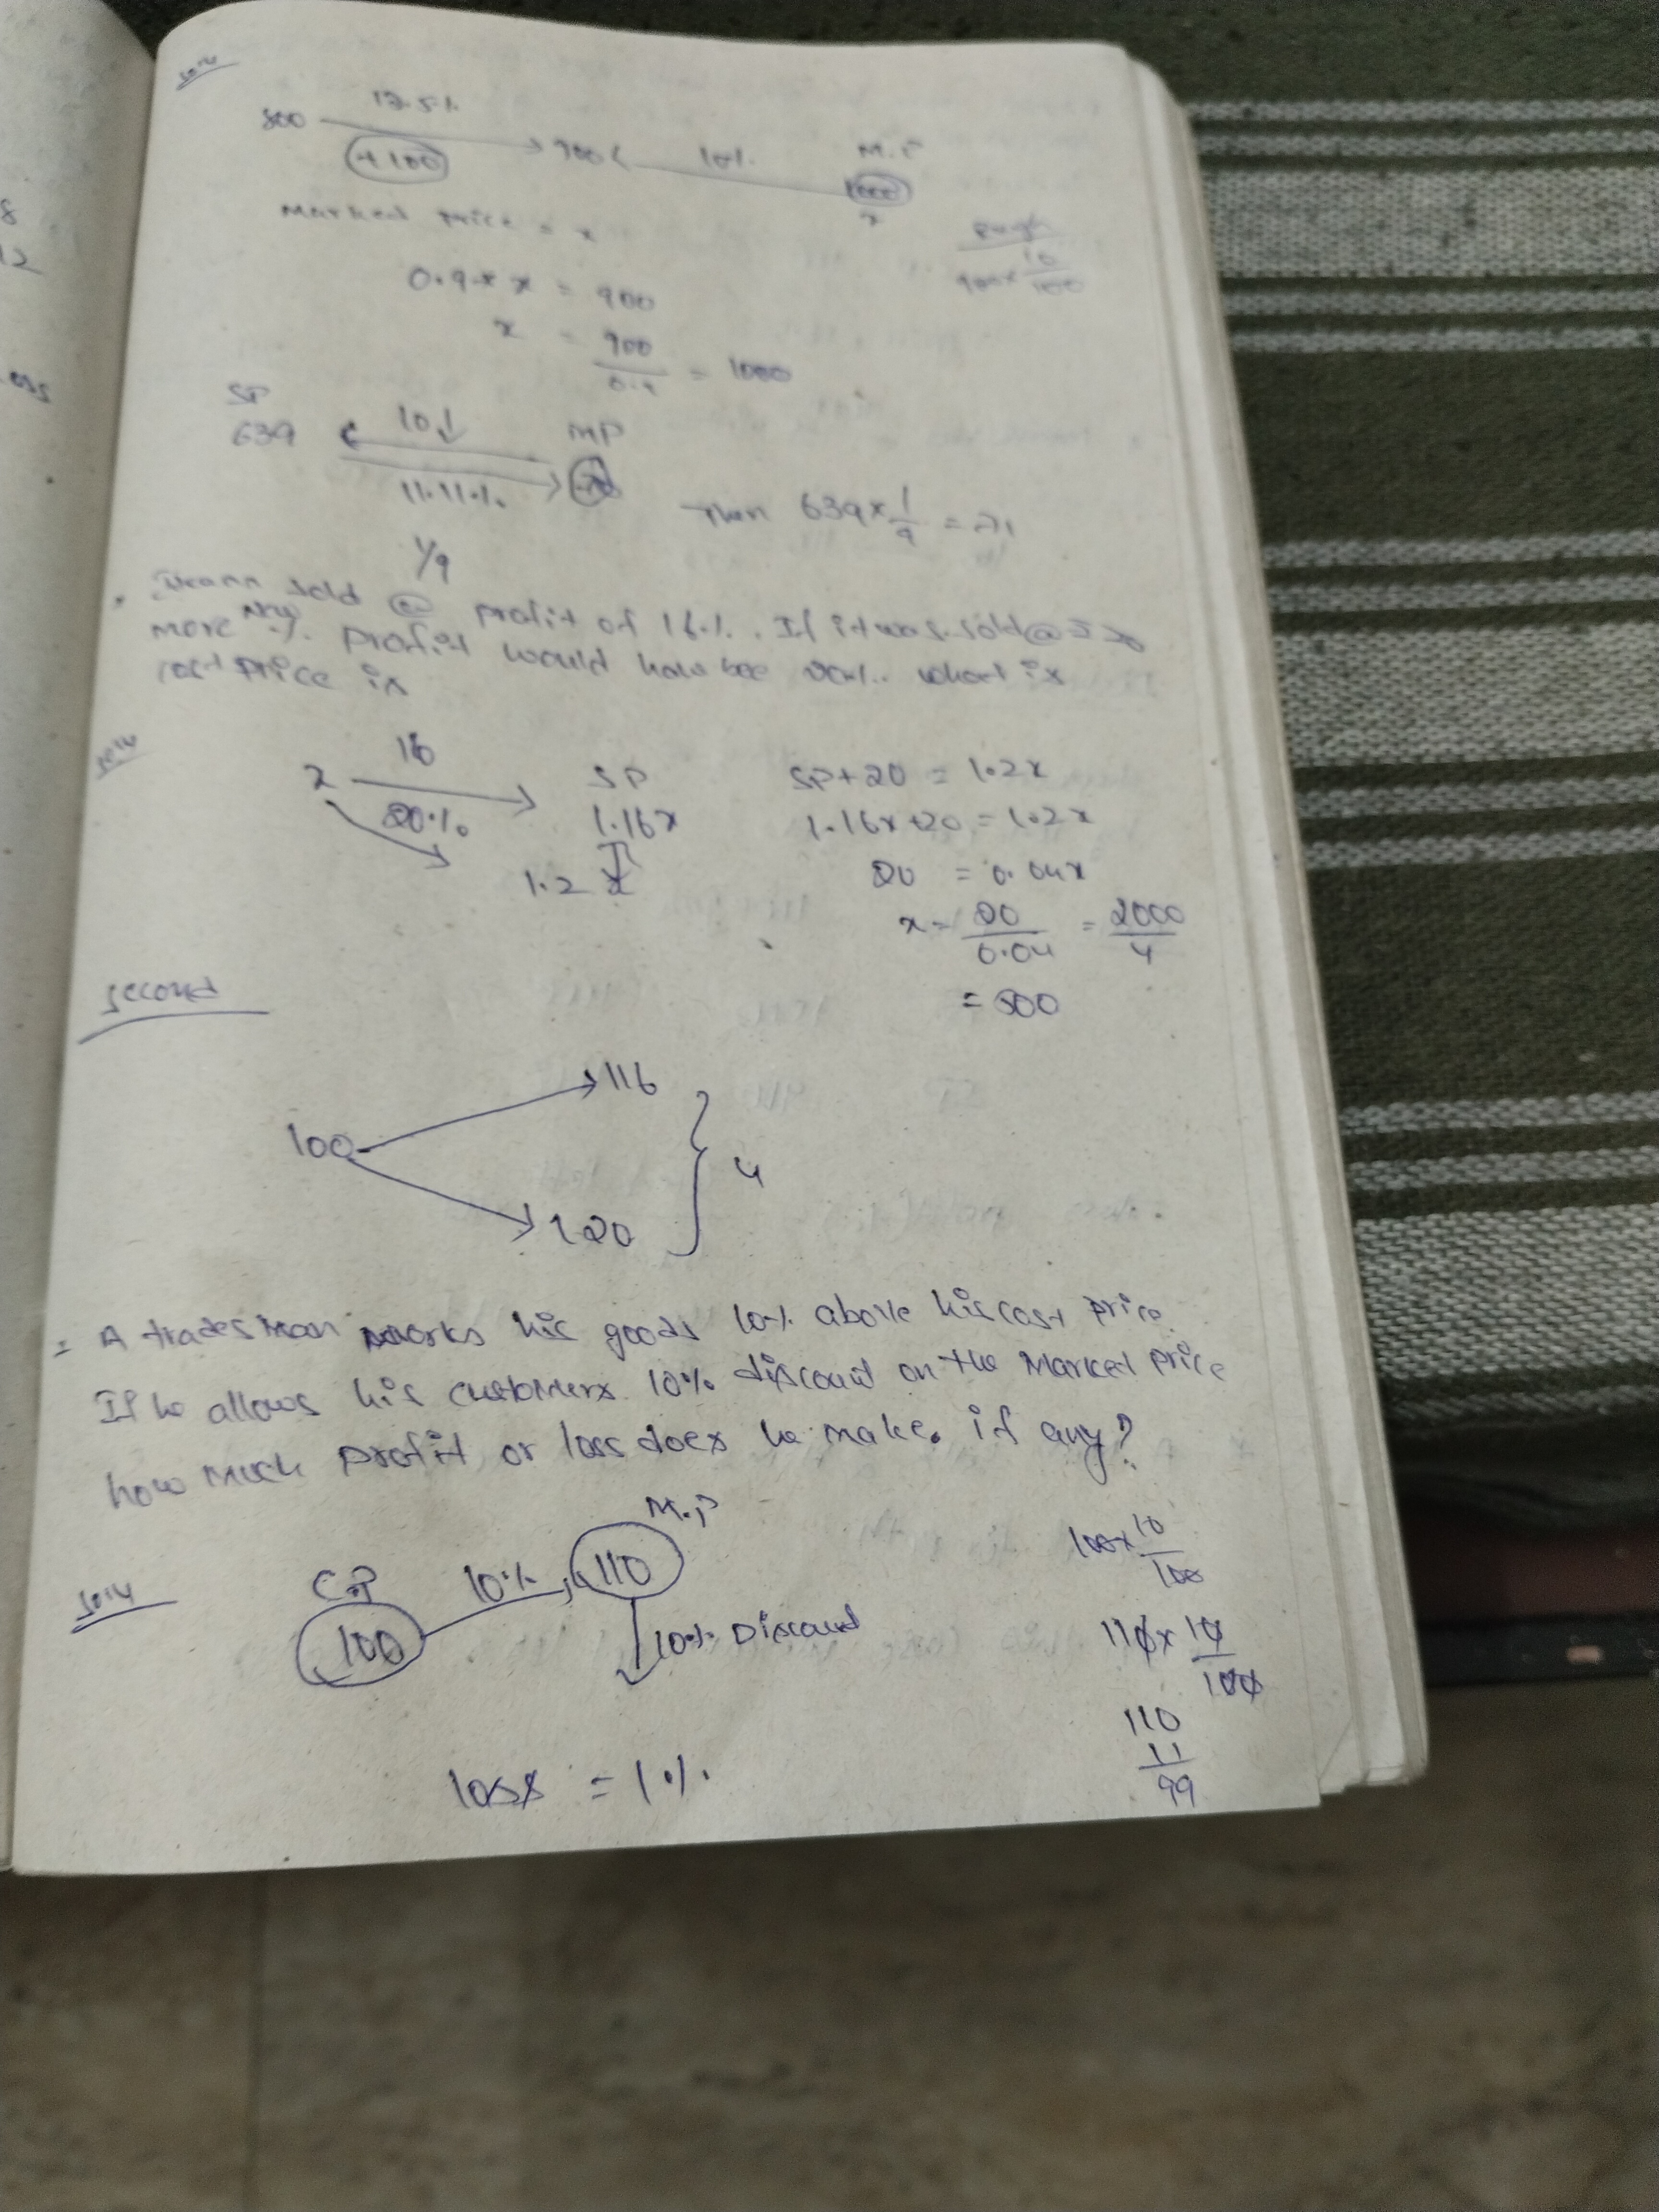 8
12
oss
soln
800 12.5% 900 10% M.P
+100 1000
x
Marked price = x
Rough
900×10/100
0.9 × x = 900
x = 900/0.9 = 1000
SP
639 10↓ MP
11.11% Then 639×1/9 = 71
1/9
sold @ profit of 16%. If it was sold @ 20
more profit would have bee 20%. what is
cost price is
soln
x 16 SP SP+20 = 1.2x
20% 1.16x 1.16x+20 = 1.2x
1.2x 20 = 0.04x
x = 20/0.04 = 2000/4
= 500
second
100 116
4
120
A trades man marks his goods 10% above his cost price.
If he allows his customers 10% discount on the Marked price
how much profit or loss does he make. if any?
soln
C.P 10% M.P
100 110
10% Discound
100×10/100
110×10/100
110
11
99
loss = 1%